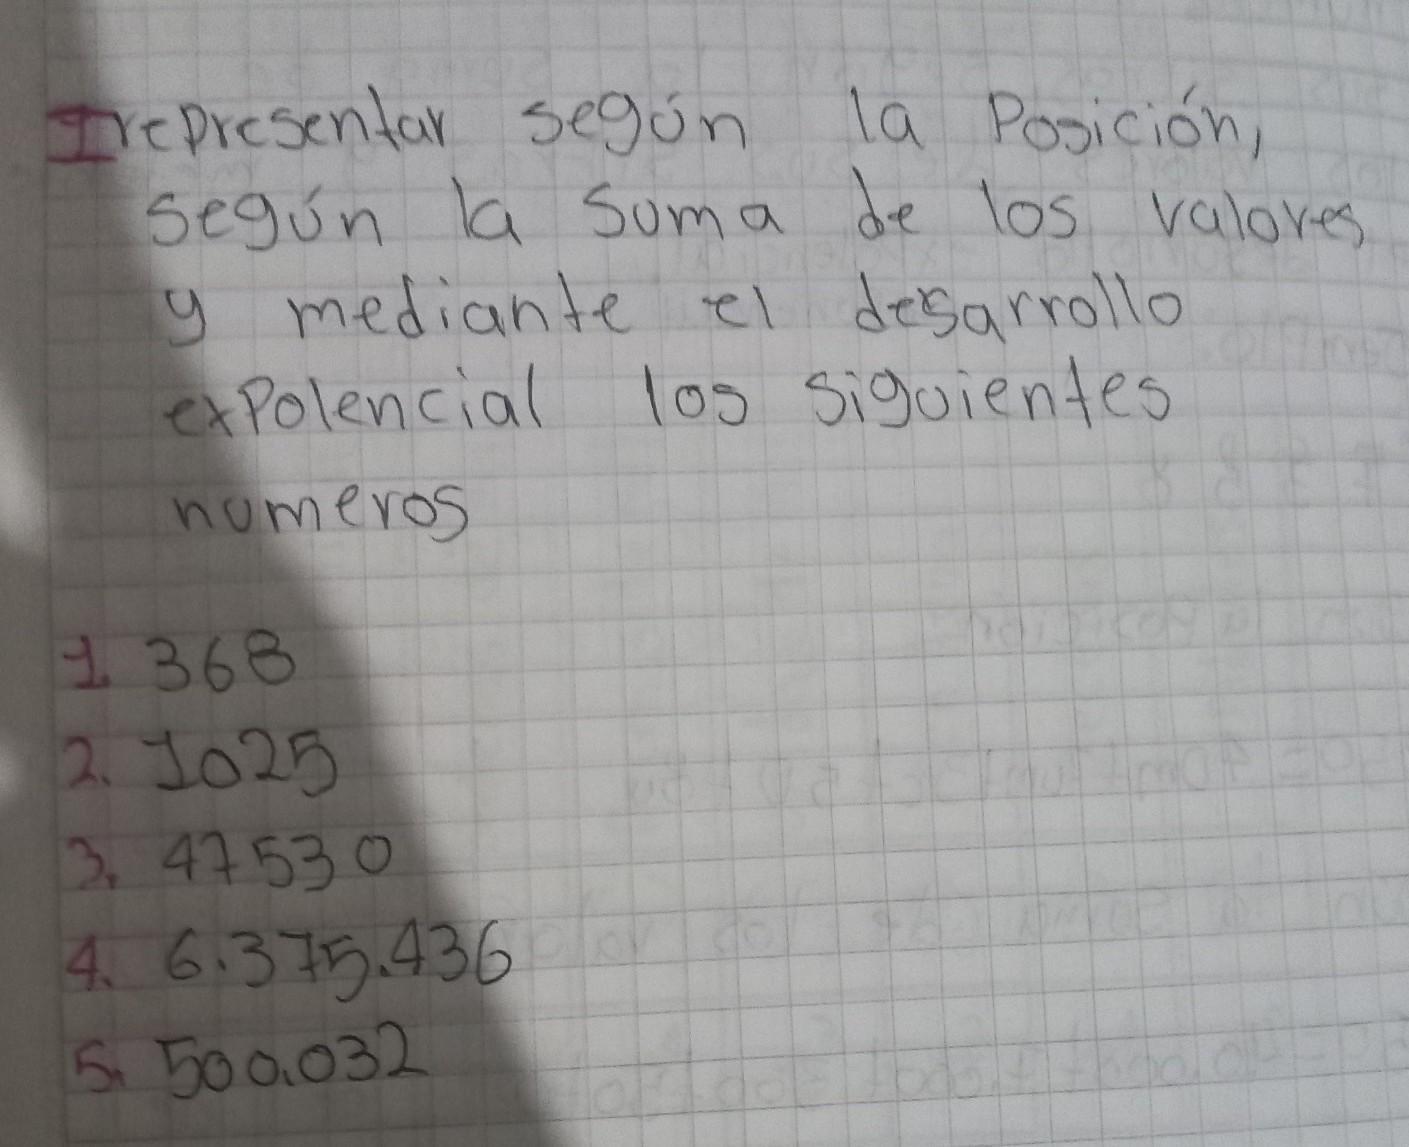 I representar según la Posición,
según la suma de los valores
y mediante el desarrollo
expolencial los siguientes
numeros
1. 368
2. 1025
3. 47530
4. 6.375.436
5. 500.032